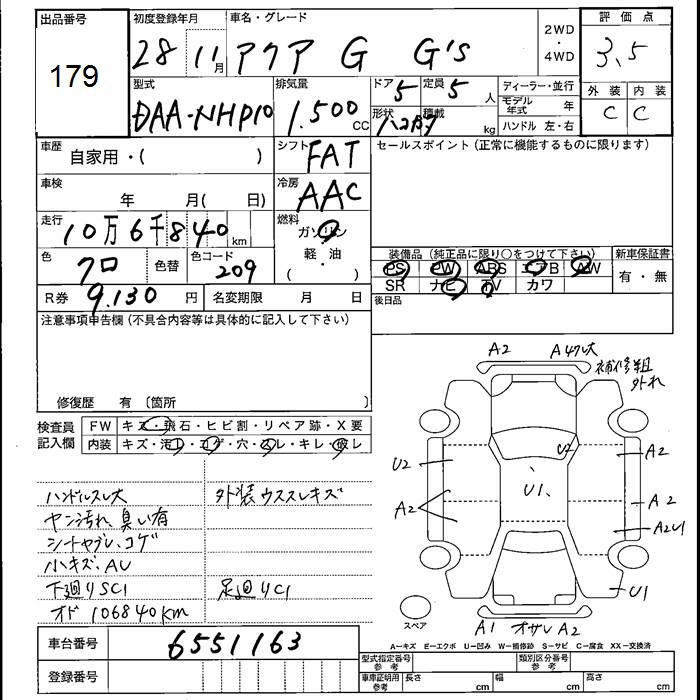 出品番号
179
初度登録年月
28 11月
車名・グレード
アクア G G's
2WD
・
4WD
評価点
3,5
外装 内装
C C
型式
DAA-NHP10
排気量
1.500
CC
ドア
5
定員
5
人
形状
ハコガタ
積載
kg
ディーラー・並行
モデル年式 年
ハンドル 左・右
車歴
自家用・( )
シフト
FAT
セールスポイント(正常に機能するものに限ります)
車検
年 月( 日)
冷房
AAC
走行
10万6千840
km
燃料
ガソリン
軽・油
( ・ )
色
クロ
色替
色コード
209
R券 9.130 円
名変期限 月 日
装備品(純正品に限り○をつけて下さい)
PS PW ABS エアB AW
SR ナビ TV カワ
新車保証書
有・無
後日品
注意事項申告欄(不具合内容等は具体的に記入して下さい)
修復歴 有〔箇所 〕
検査員
記入欄
FW キズ・飛石・ヒビ割・リペア跡・X要
内装 キズ・汚レ・コゲ・穴・スレ・キレ・破レ
ハンドルスレ大
外装ウススレキズ
ヤニ汚れ、臭い有
シートヤブレ、コゲ
小キズ、AU
下廻りSC1
足廻りC1
オド 106840km
A2
Aワレ大
補修粗
外れ
U2
U2
A2
U1、
A2
A2
A2U1
U1
スペア
A1
オサレA2
A－キズ E－エクボ U－凹み W－補修跡 S－サビ C－腐食 XX－交換済
車台番号
6551163
登録番号
型式指定番号
参考
類別区分番号
参考
車庫証明用
参考
長さ cm
幅 cm
高さ cm